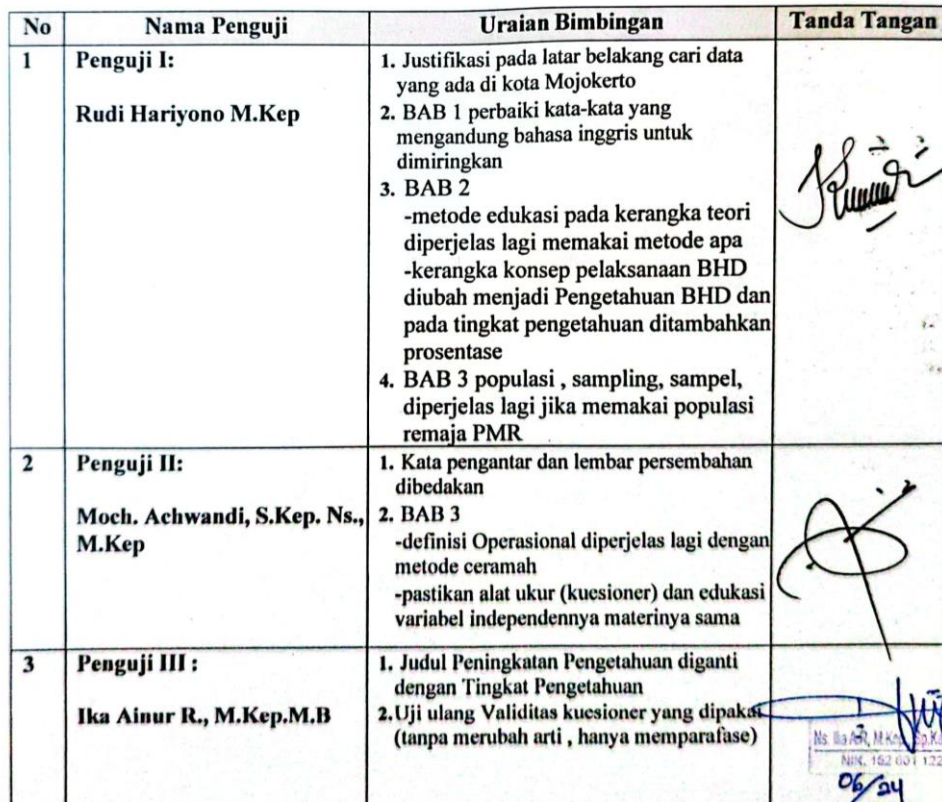 No Nama Penguji Uraian Bimbingan Tanda Tangan
1 Penguji I:
Rudi Hariyono M.Kep
1. Justifikasi pada latar belakang cari data
yang ada di kota Mojokerto
2. BAB 1 perbaiki kata-kata yang
mengandung bahasa inggris untuk
dimiringkan
3. BAB 2
-metode edukasi pada kerangka teori
diperjelas lagi memakai metode apa
-kerangka konsep pelaksanaan BHD
diubah menjadi Pengetahuan BHD dan
pada tingkat pengetahuan ditambahkan
prosentase
4. BAB 3 populasi , sampling, sampel,
diperjelas lagi jika memakai populasi
remaja PMR
2 Penguji II:
Moch. Achwandi, S.Kep. Ns.,
M.Kep
1. Kata pengantar dan lembar persembahan
dibedakan
2. BAB 3
-definisi Operasional diperjelas lagi dengan
metode ceramah
-pastikan alat ukur (kuesioner) dan edukasi
variabel independennya materinya sama
3 Penguji III :
Ika Ainur R., M.Kep.M.B
1. Judul Peningkatan Pengetahuan diganti
dengan Tingkat Pengetahuan
2.Uji ulang Validitas kuesioner yang dipakai
(tanpa merubah arti , hanya memparafase)
Ns.
NIK. 162 601 122
06/24